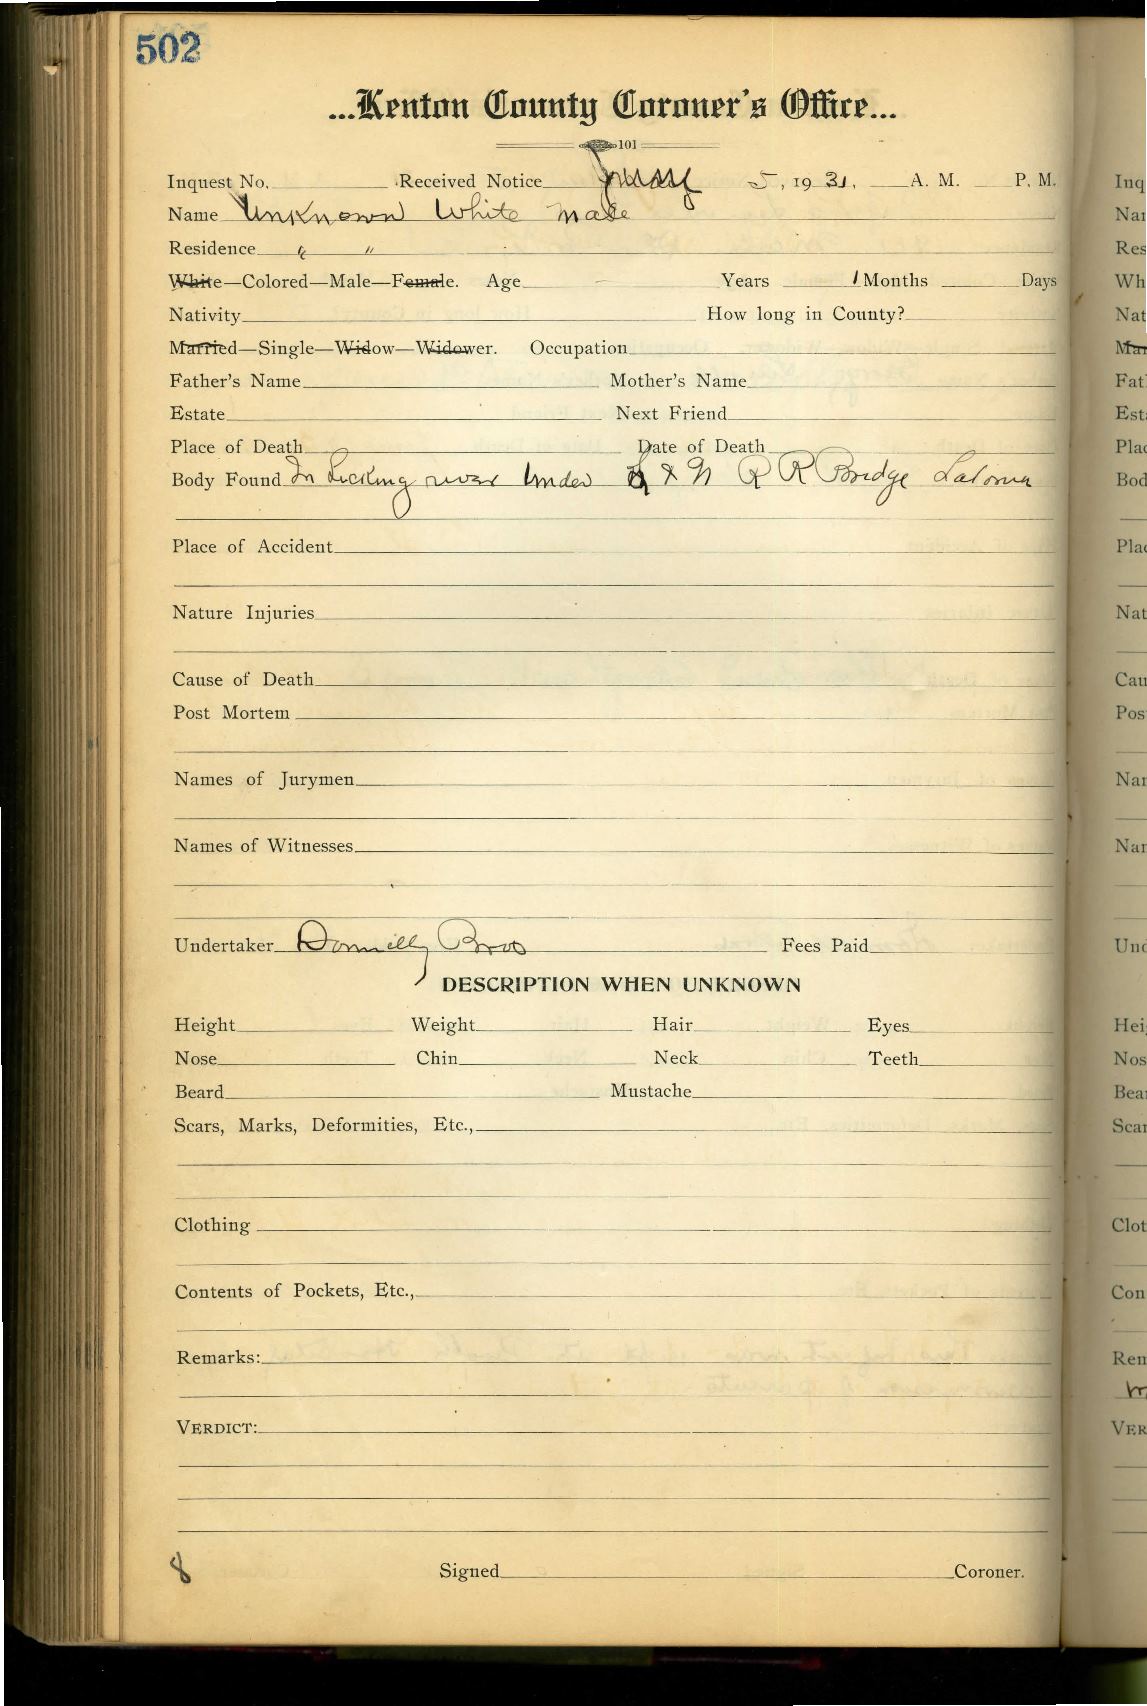 502
...Kenton County Coroner's Office...
101
Inquest No. Received Notice 5, 19 31, A. M. P. M.
Name Unknown White male
Residence " "
White—Colored—Male—Female. Age Years 1 Months Days
Nativity How long in County?
Married—Single—Widow—Widower. Occupation
Father's Name Mother's Name
Estate Next Friend
Place of Death Date of Death
Body Found In Licking river Under L & N R R Bridge Latonia
Place of Accident
Nature Injuries
Cause of Death
Post Mortem
Names of Jurymen
Names of Witnesses
Undertaker Donnelly Bros Fees Paid
DESCRIPTION WHEN UNKNOWN
Height Weight Hair Eyes
Nose Chin Neck Teeth
Beard Mustache
Scars, Marks, Deformities, Etc.,
Clothing
Contents of Pockets, Etc.,
Remarks:
VERDICT:
8 Signed Coroner.